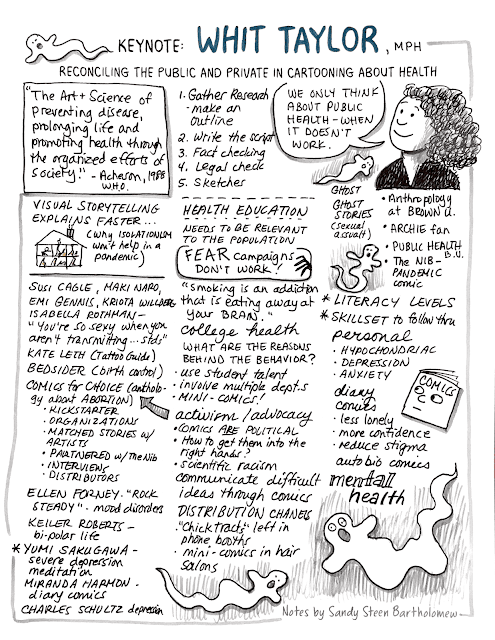 KEYNOTE: WHIT TAYLOR, MPH
RECONCILING THE PUBLIC AND PRIVATE IN CARTOONING ABOUT HEALTH
"The Art + Science of
preventing disease,
prolonging life and
promoting health through
the organized efforts of
society." - Acheson, 1988
W.H.O.
1. Gather Research
- make an
outline
2. Write the script
3. Fact checking
4. Legal check
5. Sketches
WE ONLY THINK
ABOUT PUBLIC
HEALTH - WHEN
IT DOESN'T
WORK.
GHOST
GHOST
STORIES
(sexual
assault)
• Anthropology
at BROWN U.
• ARCHIE fan
• PUBLIC HEALTH
B.U.
• The NIB -
PANDEMIC
comic
VISUAL STORYTELLING
EXPLAINS FASTER...
(why ISOLATIONISM
won't help in a
pandemic)
SUSI CAGLE, MAKI NARO,
EMI GENNIS, KRIOTA WILLBERG
ISABELLA ROTHMAN -
"You're so sexy when you
aren't transmitting... stds"
KATE LETH (Tattoo Guide)
BEDSIDER (birth control)
COMICS for CHOICE (antholo-
gy about ABORTION)
• KICKSTARTER
• ORGANIZATIONS
• MATCHED STORIES w/
ARTISTS
• PAWTNERED w/ The Nib
• INTERVIEWS
• DISTRIBUTORS
ELLEN FORNEY - "ROCK
STEADY" - mood disorders
KEILER ROBERTS -
bi-polar life
* YUMI SAKUGAWA -
severe depression
meditation
MIRANDA HARMON -
diary comics
CHARLES SCHULTZ depression
HEALTH EDUCATION
NEEDS TO BE RELEVANT
TO THE POPULATION
FEAR campaigns
DON'T WORK!
"Smoking is an addiction
that is eating away at
your BRAIN."
college health
WHAT ARE THE REASONS
BEHIND THE BEHAVIOR?
• use student talent
• involve multiple dept.s
• MINI-COMICS!
activism/advocacy
• COMICS ARE POLITICAL
• How to get them into the
right hands?
• scientific racism
communicate difficult
ideas through comics
DISTRIBUTION CHANELS
• "Chick tracts" left in
phone booths
• mini-comics in hair
salons
* LITERACY LEVELS
* SKILLSET to follow thru
personal
• HYPOCHONDRIAC
• DEPRESSION
• ANXIETY
COMICS
diary
comics
• less lonely
• more confidence
• reduce stigma
auto bio comics
mental
health
Notes by Sandy Steen Bartholomew